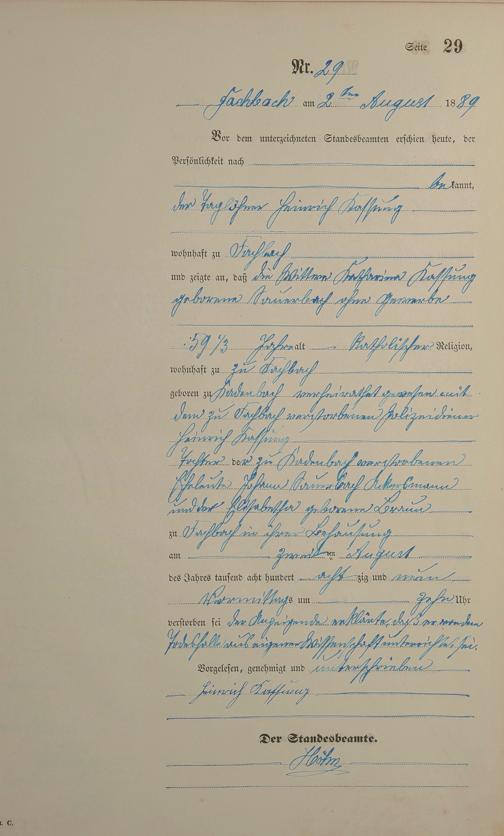 Seite 29
Nr. 29
Fachbach am 2ten August 1889
Vor dem unterzeichneten Standesbeamten erschien heute, der
Persönlichkeit nach
bekannt,
der Taglöhner Heinrich Kassung
wohnhaft zu Fachbach
und zeigte an, daß die Wittwe Katharina Kassung
geborene Sauerbach ohne Gewerbe
59 1/3 Jahre alt Katholischer Religion,
wohnhaft zu zu Fachbach
geboren zu Kadenbach verheirathet gewesen mit
dem zu Fachbach verstorbenen Polizeidiener
Heinrich Kassung
Tochter der zu Kadenbach verstorbenen
Eheleute Johann Sauerbach Ackersmann
und der Elisabetha geborene Braun
zu Fachbach in ihrer Behausung
am zweiten August
des Jahres tausend acht hundert acht zig und neun
Vormittags um zehn Uhr
verstorben sei der Anzeigende erklärte, daß er von dem
Todesfalle aus eigener Wissenschaft unterrichtet sei.
Vorgelesen, genehmigt und unterschrieben
Heinrich Kassung
Der Standesbeamte.
Höhn
C.